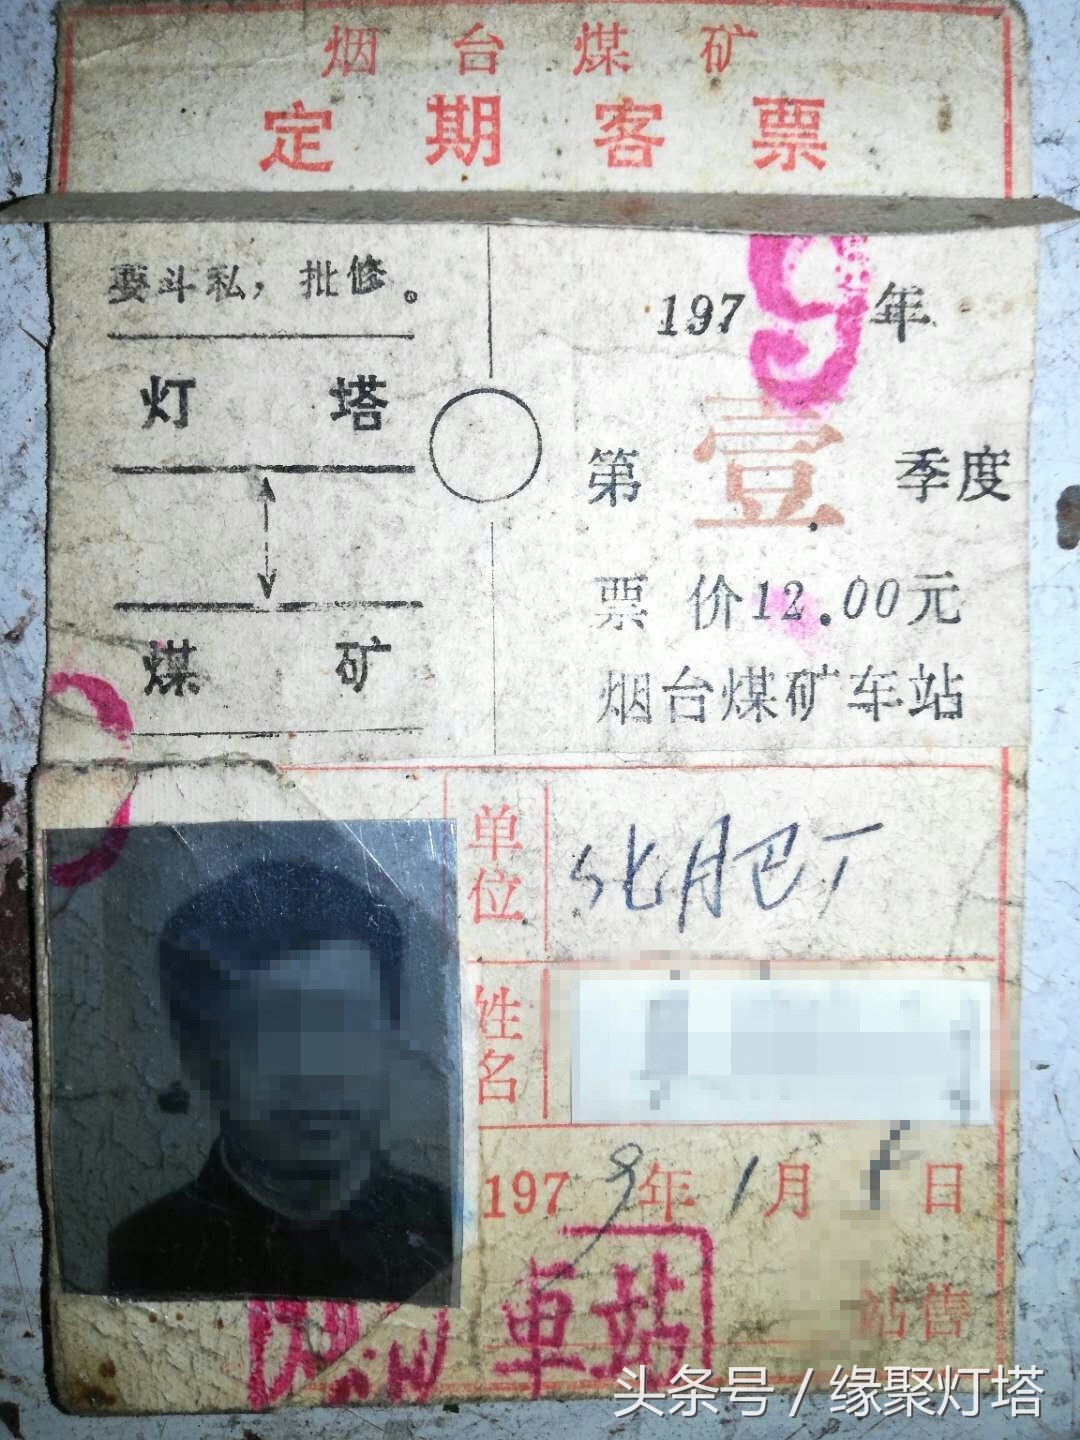 烟台煤矿
定期客票
要斗私，批修。
灯塔
煤矿
1979年
第壹季度
票价12.00元
烟台煤矿车站
单位 化肥厂
姓名
1979年1月 日
站售
車站
头条号 / 缘聚灯塔